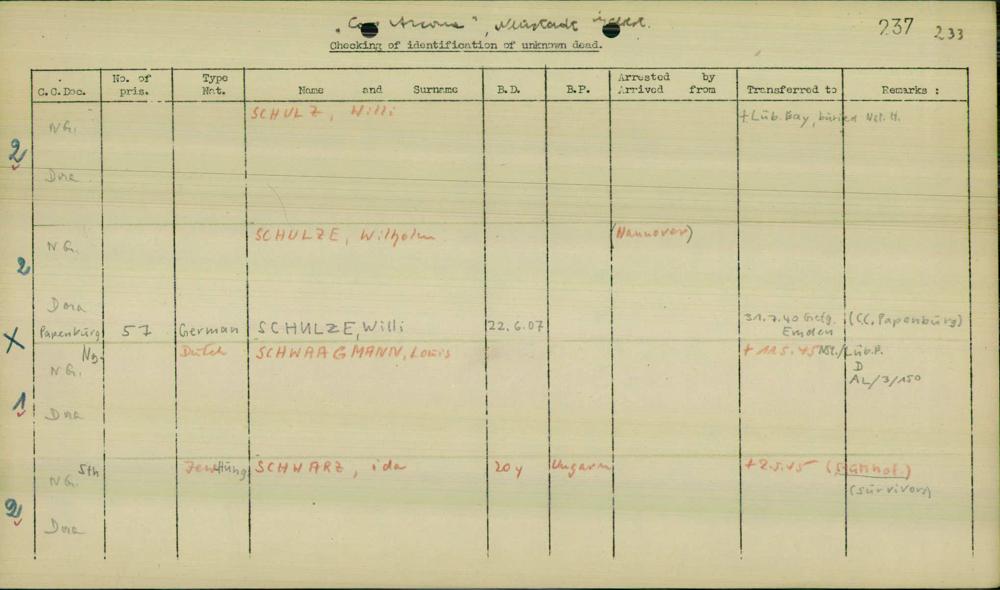 "Cap Arcona", Neustadt
237 233
Checking of identification of unknown dead.
C.C.Doc. No. of pris. Type Nat. Name and Surname B.D. B.P. Arrested by Arrived from Transferred to Remarks :
2 NG. SCHULZ, Willi + Lüb. Bay, buried Nst. H.
Dora
2 NG. SCHULZE, Wilhelm (Hannover)
Dora
X Papenburg 57 German SCHULZE, Willi 22.6.07 31.7.40 Gefg. Emden (CC. Papenburg)
Ng. Dutch SCHWAAGMANN, Louis Nst./Lüb.P.
NG. D
AL/3/150
1 Dora
Sth Jew Hung SCHWARZ, ida 20 y Ungarn + 2.5.45 (Stutthof.)
NG. (survivors)
2 Dora